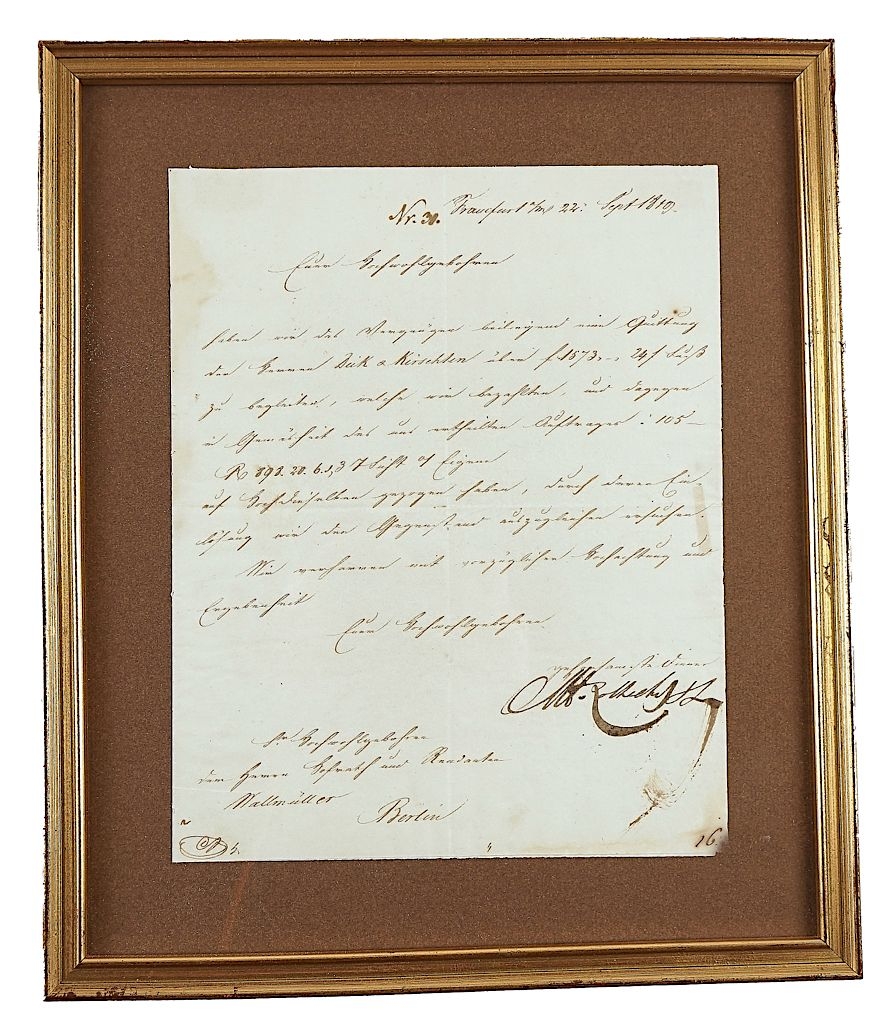 Nr. 31. Francfurt a/m 22. Sept 1819.
Euer Hochwohlgebohren
haben wir das Vergnügen beiliegend eine Quittung
der Herren Deik & Kirschten über f 1573, 24 f Fuß
zu begleiten, welche wir bezahlten, und dagegen
in Gemäsheit des uns ertheilten Auftrages : 105 –
R 893. 20. 6. 3 Sicht o/ Eigene
auf Hochdieselben gezogen haben, durch deren Ein-
lösung wir den Gegenstand auszugleichen ersuchen.
Wir verharren mit vorzüglicher Hochachtung und
Ergebenheit
Euer Hochwohlgebohren
gehorsamste Diener
Sr Hochwohlgebohren
dem Herrn Hofrath und Rendanten
Wallmüller
Berlin
16